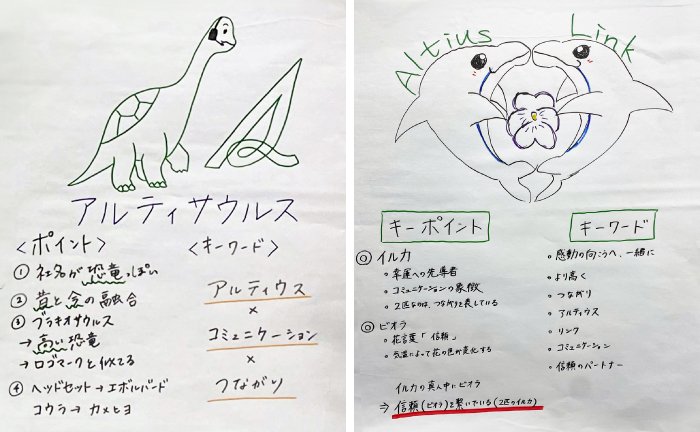 アルティサウルス
<ポイント>
① 社名が恐竜っぽい
② 昔と今の融合
③ ブラキオサウルス
→ 高い恐竜
→ ロゴマークと似てる
④ ヘッドセット→エボルバード
コウラ→カメヒヨ
<キーワード>
アルティウス
×
コミュニケーション
×
つながり
Altius Link
キーポイント
◎ イルカ
・幸運への先導者
・コミュニケーションの象徴
・2匹なのは、つながりを表している
◎ ビオラ
・花言葉「信頼」
・気温によって花の色が変化する
イルカの真ん中にビオラ
⇒ 信頼(ビオラ)を繋いでいる(2匹のイルカ)
キーワード
・感動の向こうへ、一緒に
・より高く
・つながり
・アルティウス
・リンク
・コミュニケーション
・信頼のパートナー